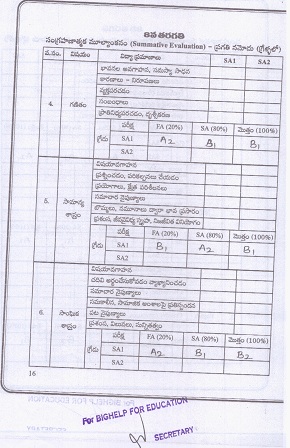 8వ తరగతి
సంగ్రహణాత్మక మూల్యాంకనం (Summative Evaluation) – ప్రగతి నమోదు (గ్రేళ్ళలో)
వ.సం. విషయం విద్యా ప్రమాణాలు SA1 SA2
భావనల అవగాహన, సమస్యా సాధన
కారణాలు - నిరూపణలు
వ్యక్తపరచడం
4. గణితం సంబంధాలు
ప్రాతినిధ్యపరచడం, దృశ్యీకరణ
గ్రేడు పరీక్ష FA (20%) SA (80%) మొత్తం (100%)
SA1 A2 B1 B1
SA2
విషయావగాహన
ప్రశ్నించడం, పరికల్పనలు చేయడం
ప్రయోగాలు, క్షేత్ర పరిశీలనలు
5. సామాన్య శాస్త్రం సమాచార నైపుణ్యాలు
బొమ్మలు, నమూనాలు ద్వారా భావ ప్రసారం
ప్రశంస, జీవవైవిధ్య స్పృహ, నిజజీవిత వినియోగం
గ్రేడు పరీక్ష FA (20%) SA (80%) మొత్తం (100%)
SA1 B1 A2 B1
SA2
విషయావగాహన
చదివి అర్థంచేసుకోవడం వ్యాఖ్యానించడం
సమాచార నైపుణ్యాలు
6. సాంఘిక శాస్త్రం సమకాలీన, సామాజిక అంశాలపై ప్రతిస్పందన
పట నైపుణ్యాలు
ప్రశంస, విలువలు, సున్నితత్వం
గ్రేడు పరీక్ష FA (20%) SA (80%) మొత్తం (100%)
SA1 A2 B1 B1
SA2
16
For BIGHELP FOR EDUCATION
SECRETARY